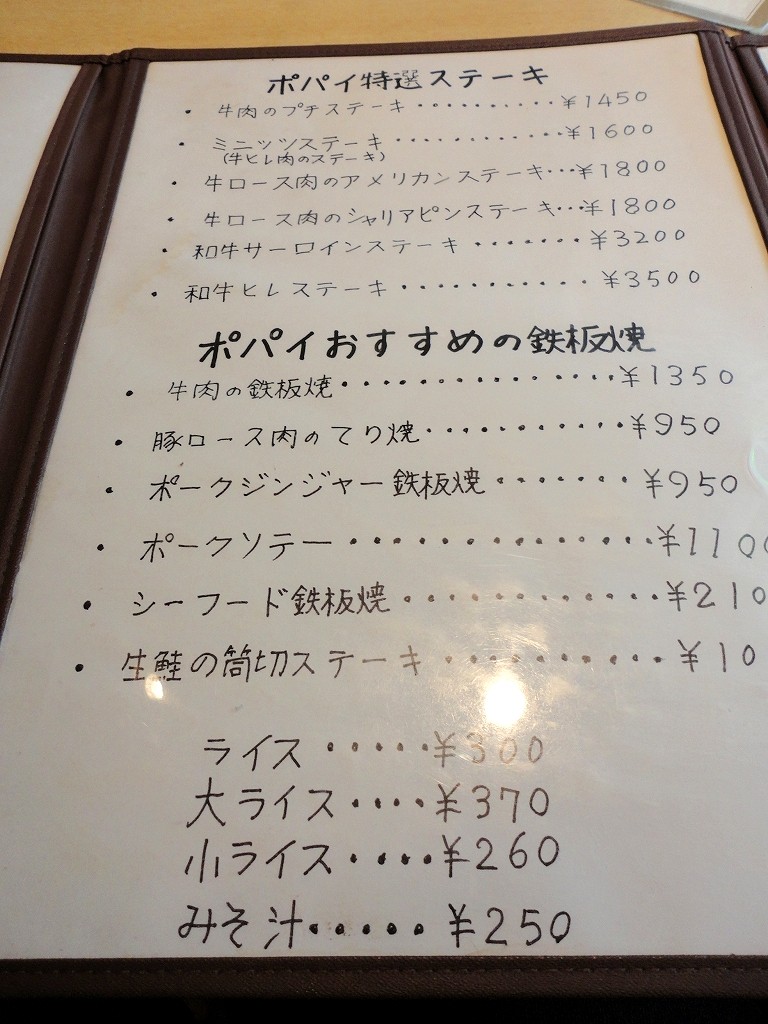 ポパイ特選ステーキ
・牛肉のプチステーキ・・・・・・・・・・¥1450
・ミニッツステーキ・・・・・・・・・・・・¥1600
(牛ヒレ肉のステーキ)
・牛ロース肉のアメリカンステーキ・・・¥1800
・牛ロース肉のシャリアピンステーキ・・・¥1800
・和牛サーロインステーキ・・・・・・・¥3200
・和牛ヒレステーキ・・・・・・・・・・・¥3500
ポパイおすすめの鉄板焼
・牛肉の鉄板焼・・・・・・・・・・・・・・・¥1350
・豚ロース肉のてり焼・・・・・・・・・・・¥950
・ポークジンジャー鉄板焼・・・・・・・¥950
・ポークソテー・・・・・・・・・・・・・・¥1100
・シーフード鉄板焼・・・・・・・・・・・・¥210
・生鮭の筒切ステーキ・・・・・・・・・・¥10
ライス・・・・・¥300
大ライス・・・・¥370
小ライス・・・・¥260
みそ汁・・・・・¥250